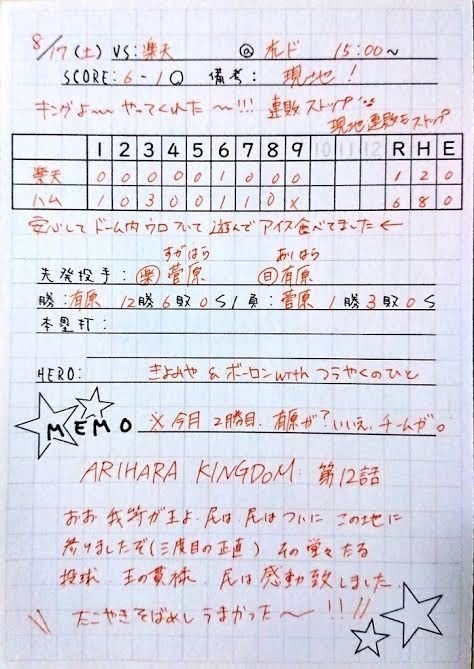 8/17(土) VS:楽天 @札ド 15:00~
SCORE:6-1○ 備考: 現地!
キングよ~ やってくれた~!!! 連敗ストップ
現地連敗もストップ
1 2 3 4 5 6 7 8 9 R H E
楽天 0 0 0 0 0 1 0 0 0 1 2 0
ハム 1 0 3 0 0 1 1 0 X 6 8 0
安心してドーム内ウロついて遊んでアイス食べてました←
すがはら ありはら
先発投手: 楽 菅原 日 有原
勝:有原 12勝6敗0S/負:菅原 1勝3敗0S
本塁打:
HERO: きよみや & ボーロン with つうやくのひと
MEMO ※今月2勝目.有原が?いいえ、チームが。
ARIHARA KINGDOM 第12話
おお 我等が王よ.民は.民はついに この地に
参りましたぞ(三度目の正直) その堂々たる
投球.王の貫禄.民は感動致しました
たこやきそばめし うまかった~!!!!